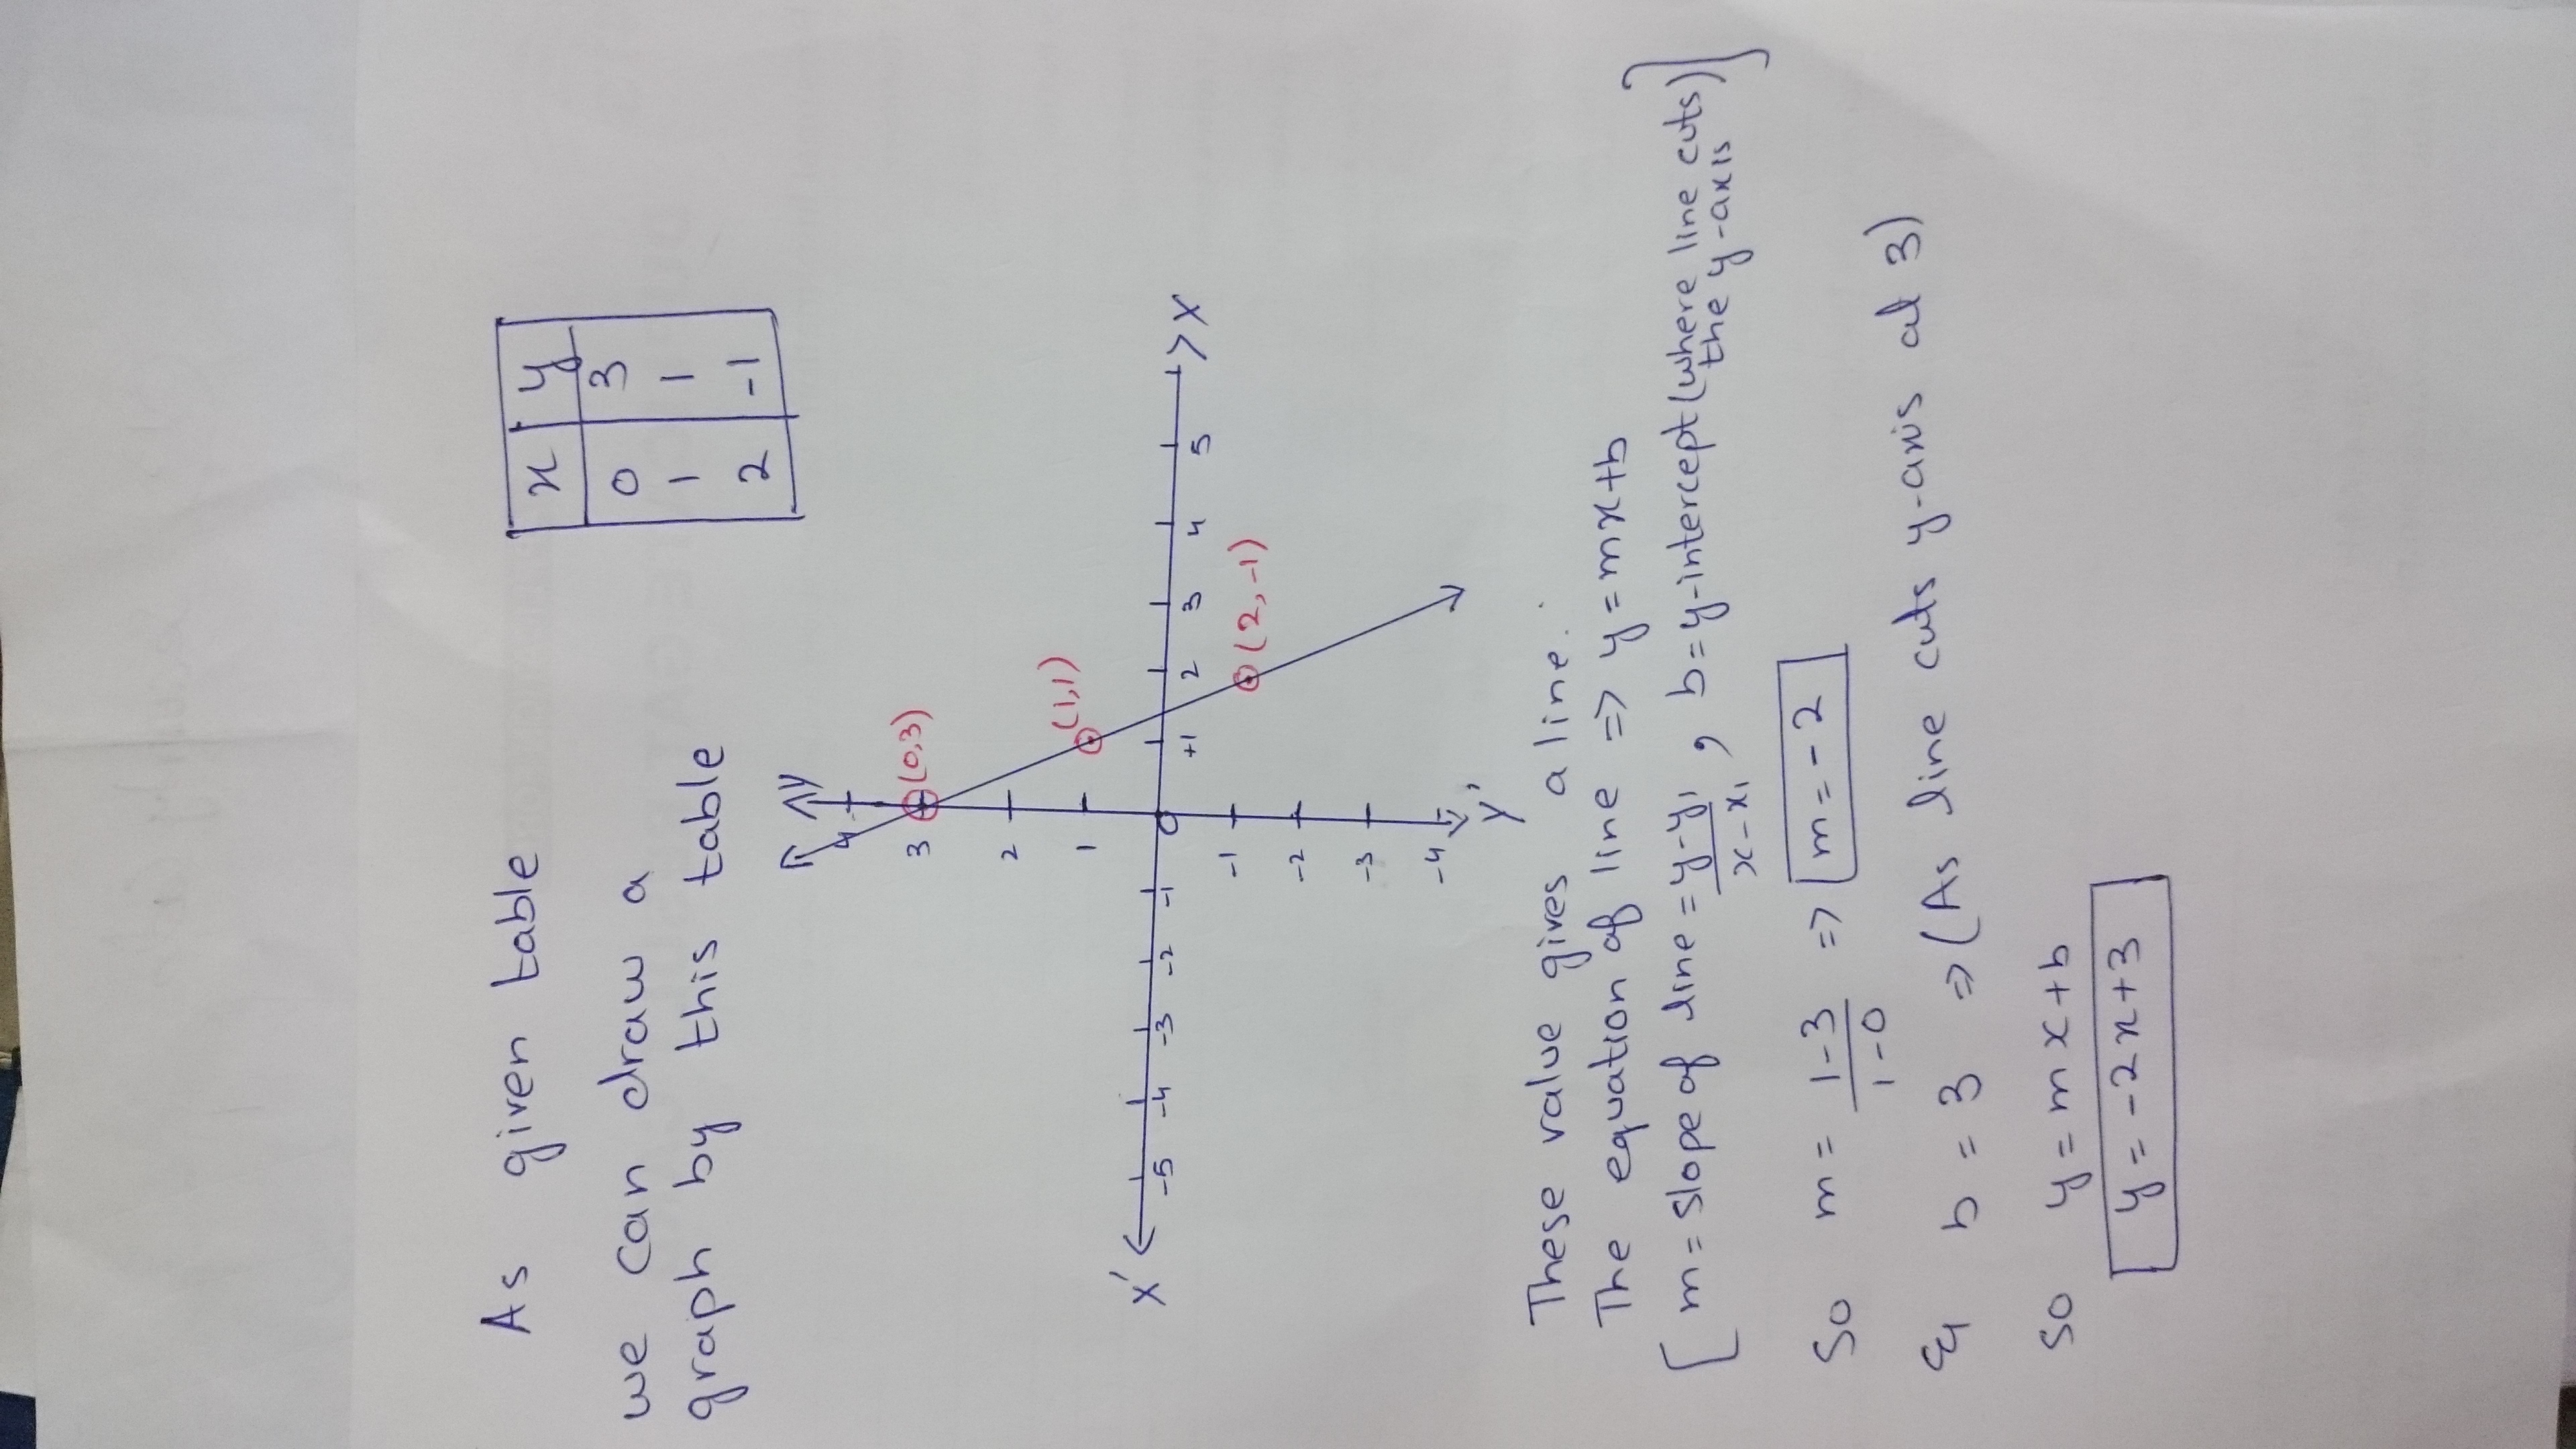 As given table
x y
0 3
1 1
2 -1
we can draw a
graph by this table
Y
4
3 (0,3)
2
1 (1,1)
X' -5 -4 -3 -2 -1 0 +1 2 3 4 5 X
-1 (2,-1)
-2
-3
-4
Y'
These value gives a line.
The equation of line => y = mx+b
[m = slope of line = y-y₁/x-x₁, b = y-intercept (where line cuts)
the y-axis]
So m = 1-3/1-0 => m = -2
& b = 3 => (As line cuts y-axis at 3)
so y = mx+b
y = -2x+3